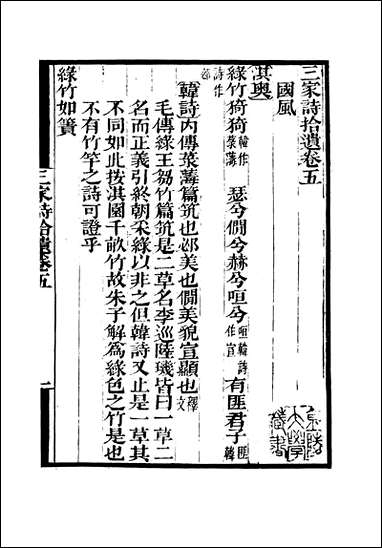 三家詩拾遺卷五
國風
淇奧
綠竹猗猗韓作菉䓯 瑟兮僩兮赫兮咺兮咺韓詩作宣 有匪君子匪韓
詩作邲
韓詩內傳菉䓯篇筑也邲美也僩美貌宣顯也釋文
毛傳綠王芻竹篇筑是二草名李巡陸璣皆曰一草二
名而正義引終朝采綠以非之但韓詩又止是一草其
不同如此按淇園千畝竹故朱子解為綠色之竹是也
不有竹竿之詩可證乎
綠竹如簀
三家詩拾遺卷五 一